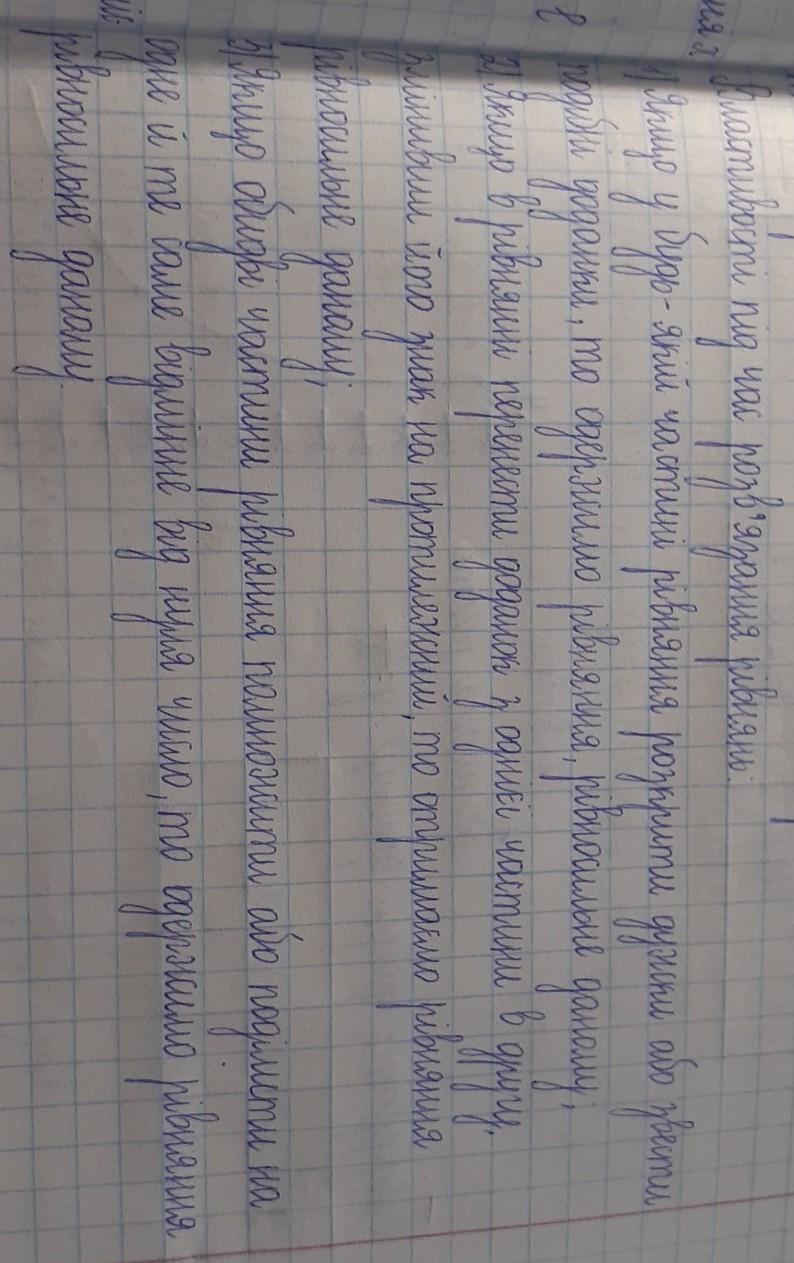 Властивості під час розв'язання рівнянь.
1) Якщо у будь-якій частині рівняння розкрити дужки або звести
подібні доданки, то одержимо рівняння, рівносильне даному;
2) Якщо в рівнянні перенести доданок з однієї частини в другу,
змінивши його знак на протилежний, то отримаємо рівняння
рівносильне даному;
3) Якщо обидві частини рівняння помножити або поділити на
одне й те саме відмінне від нуля число, то одержимо рівняння
рівносильне даному.